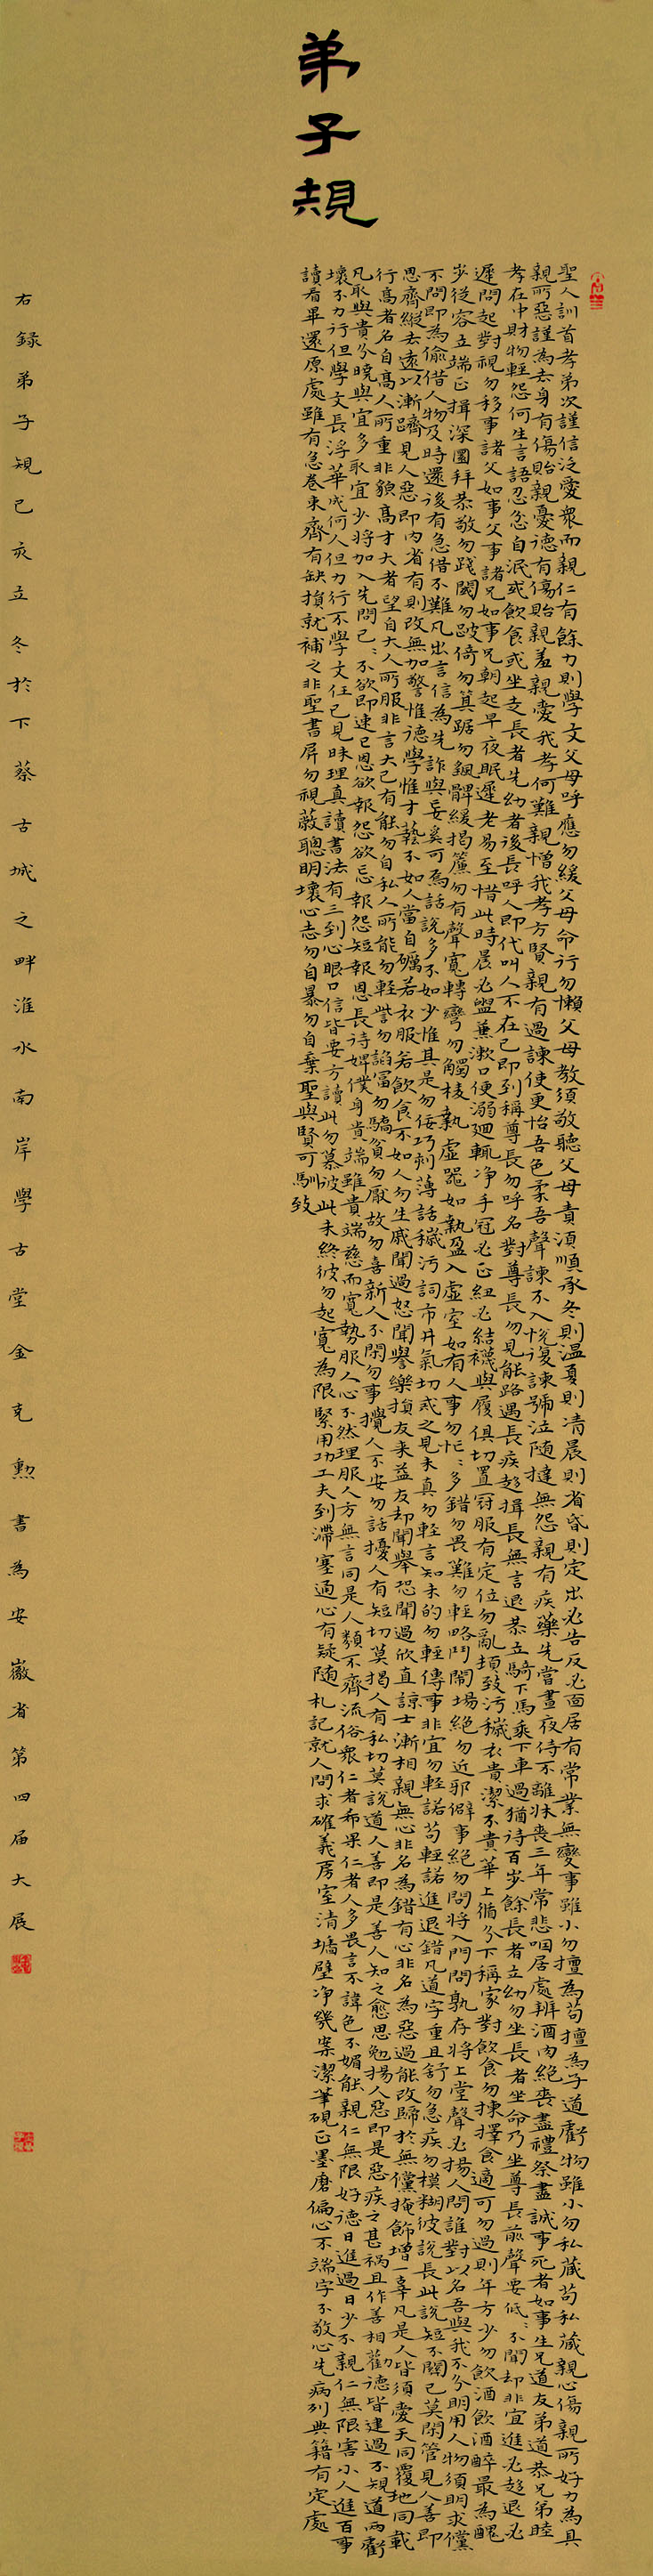 弟子規
聖人訓首孝弟次謹信泛愛衆而親仁有餘力則學文父母呼應勿緩父母命行勿懶父母教須敬聽父母責須順承冬則溫夏則凊晨則省昏則定出必告反必面居有常業無變事雖小勿擅為苟擅為子道虧物雖小勿私藏苟私藏親心傷親所好力為具
親所惡謹為去身有傷貽親憂德有傷貽親羞親愛我孝何難親憎我孝方賢親有過諫使更怡吾色柔吾聲諫不入悅復諫號泣随撻無怨親有疾藥先嘗晝夜侍不離牀喪三年常悲咽居處辨酒肉絕喪盡禮祭盡誠事死者如事生兄道友弟道恭兄弟睦
孝在中財物輕怨何生言語忍忿自泯或飲食或坐走長者先幼者後長呼人即代叫人不在己即到稱尊長勿呼名對尊長勿見能路遇長疾趨揖長無言退恭立騎下馬乘下車過猶待百步餘長者立幼勿坐長者坐命乃坐尊長前聲要低〻不聞却非宜進必趨退必
遲問起對視勿移事諸父如事父事諸兄如事兄朝起早夜眠遲老易至惜此時晨必盥兼漱口便溺迴輒净手冠必正紐必結襪與履俱切置冠服有定位勿亂頓致污穢衣貴潔不貴華上循分下稱家對飲食勿揀擇食適可勿過則年方少勿飲酒飲酒醉最為醜
步從容立端正揖深圓拜恭敬勿踐閾勿跛倚勿箕踞勿搖髀緩揭簾勿有聲寬轉彎勿觸棱執虛器如執盈入虛室如有人事勿忙〻多錯勿畏難勿輕略鬥鬧場絕勿近邪僻事絕勿問將入門問孰存將上堂聲必揚人問誰對以名吾與我不分明用人物須明求儻
不問即為偷借人物及時還後有急借不難凡出言信為先詐與妄奚可焉話說多不如少惟其是勿佞巧刻薄話穢污詞市井氣切戒之見未真勿輕言知未的勿輕傳事非宜勿輕諾苟輕諾進退錯凡道字重且舒勿急疾勿模糊彼說長此說短不關己莫閑管見人善即
思齊縱去遠以漸躋見人惡即內省有則改無加警惟德學惟才藝不如人當自礪若衣服若飲食不如人勿生戚聞過怒聞譽樂損友來益友却聞舉恐聞過欣直諒士漸相親無心非名為錯有心非名為惡過能改歸於無儻掩飾增一辜凡是人皆須愛天同覆地同載
行高者名自高人所重非貌高才大者望自大人所服非言大己有能勿自私人所能勿輕訾勿諂富勿驕貧勿厭故勿喜新人不閑勿事攪人不安勿話擾人有短切莫揭人有私切莫說道人善即是善人知之愈思勉揚人惡即是惡疾之甚禍且作善相勸德皆建過不規道兩虧
凡取與貴分曉與宜多取宜少將加人先問己〻不欲即速已恩欲報怨欲忘報怨短報恩長待婢僕身貴端雖貴端慈而寬勢服人心不然理服人方無言同是人類不齊流俗衆仁者希果仁者人多畏言不諱色不媚能親仁無限好德日進過日少不親仁無限害小人進百事
壞不力行但學文長浮華成何人但力行不學文任己見昧理真讀書法有三到心眼口信皆要方讀此勿慕彼此未終彼勿起寬為限緊用功工夫到滯塞通心有疑随札記就人問求確義房室清墻壁净幾案潔筆硯正墨磨偏心不端字不敬心先病列典籍有定處
讀看畢還原處雖有急卷束齊有缺損就補之非聖書屏勿視蔽聰明壞心志勿自暴勿自棄聖與賢可馴致
右錄弟子規己亥立冬於下蔡古城之畔淮水南岸學古堂金克勲書為安徽省第四届大展